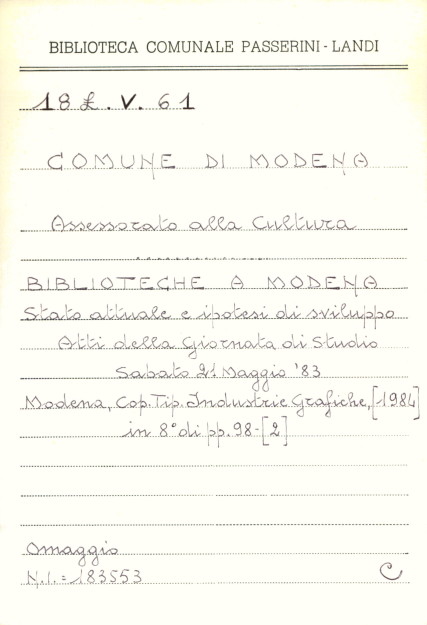 BIBLIOTECA COMUNALE PASSERINI-LANDI
18 £. V. 61
COMUNE DI MODENA
Assessorato alla Cultura
..................
BIBLIOTECHE A MODENA
Stato attuale e ipotesi di sviluppo
Atti della Giornata di Studio
Sabato 21 Maggio '83
Modena, Cop. Tip. Industrie Grafiche, [1984]
in 8° di pp. 98-[2]
Omaggio
N.I. = 183553
C